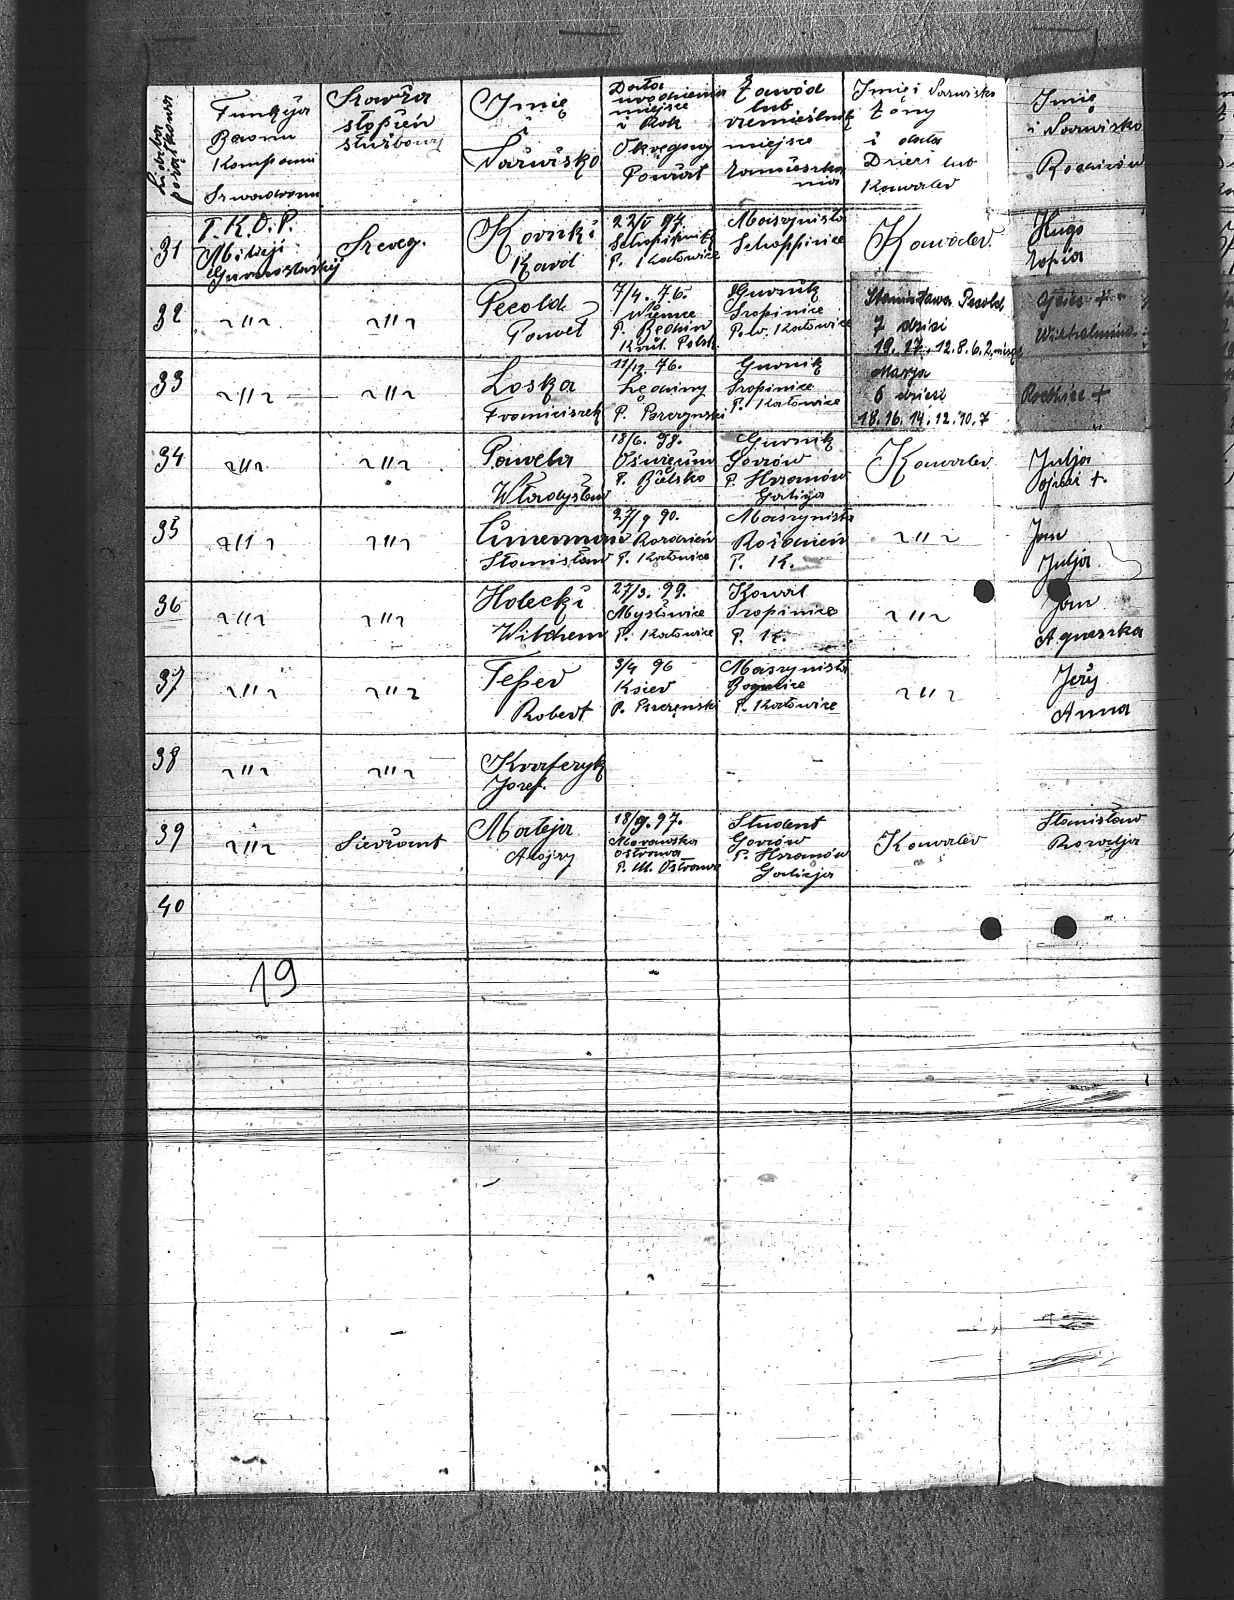 Liczba porządkowa
Funkcja
Baonu
Kompanii
Szwadronu
Szarża
stopień
służbowy
Imię
i
Nazwisko
Data
urodzenia
miejsce
i Rok
Okręgowy
Powiat
Zawód
lub
rzemieślnik
miejsce
zamieszka
nia
Imię i Nazwisko
Żony
i data
Dzieci lub
Kawaler
Imię
i Nazwisko
Rodziców
31
T.K.O.P.
Milicji
Szereg.
Kornki
Karol
22/V 94.
P. Katowice
Maszynista
Schoppinice
Kawaler
Hugo
Zofia
32
~ " ~
~ " ~
Pecold
Paweł
7/4. 76.
P. Będzin
Król. Polsk.
Gurnik
Sropinice
Pow. Katowice
Stanisława Pecold
7 dzieci
19. 17. 12. 8. 6. 2. mieś
Wilchelmina
33
~ " ~
~ " ~
Loska
Franciszek
11/12. 76.
Lędziny
P. Pszczynski
Gurnik
Sropinice
P. Katowice
Marja
6 dzieci
18. 16. 14. 12. 10. 7
Rodzice +
34
~ " ~
~ " ~
Pawela
Władysław
18/6. 98.
Oświęcim
P. Bilsko
Gurnik
Gorzów
P. Hrzanów
Galicja
Kawaler
Julja
ojciec +.
35
~ " ~
~ " ~
Cimerman
Stanisław
27/9 90.
Rozdzień
P. Katowice
Maszynista
Rozdzień
P. K.
~ " ~
Jan
Julja
36
~ " ~
~ " ~
Holecki
Wilchem
27/3. 99.
Mysłowice
P. Katowice
Kowal
Sropinice
P. K.
~ " ~
Jan
Agneszka
37
~ " ~
~ " ~
Teper
Robert
3/4 96
P. Pszczęnski
Maszynista
Bogucice
P. Katowice
~ " ~
Jeży
Anna
38
~ " ~
~ " ~
Krafczyk
Jozef.
39
~ " ~
Sierżant
Mateja
Alojzy
18/9. 97.
Morawska
Ostrawa
P. M. Ostrawa
Student
Gorzów
P. Hrzanów
Galicja
Kawaler
Stanisław
Rozalja
40
19